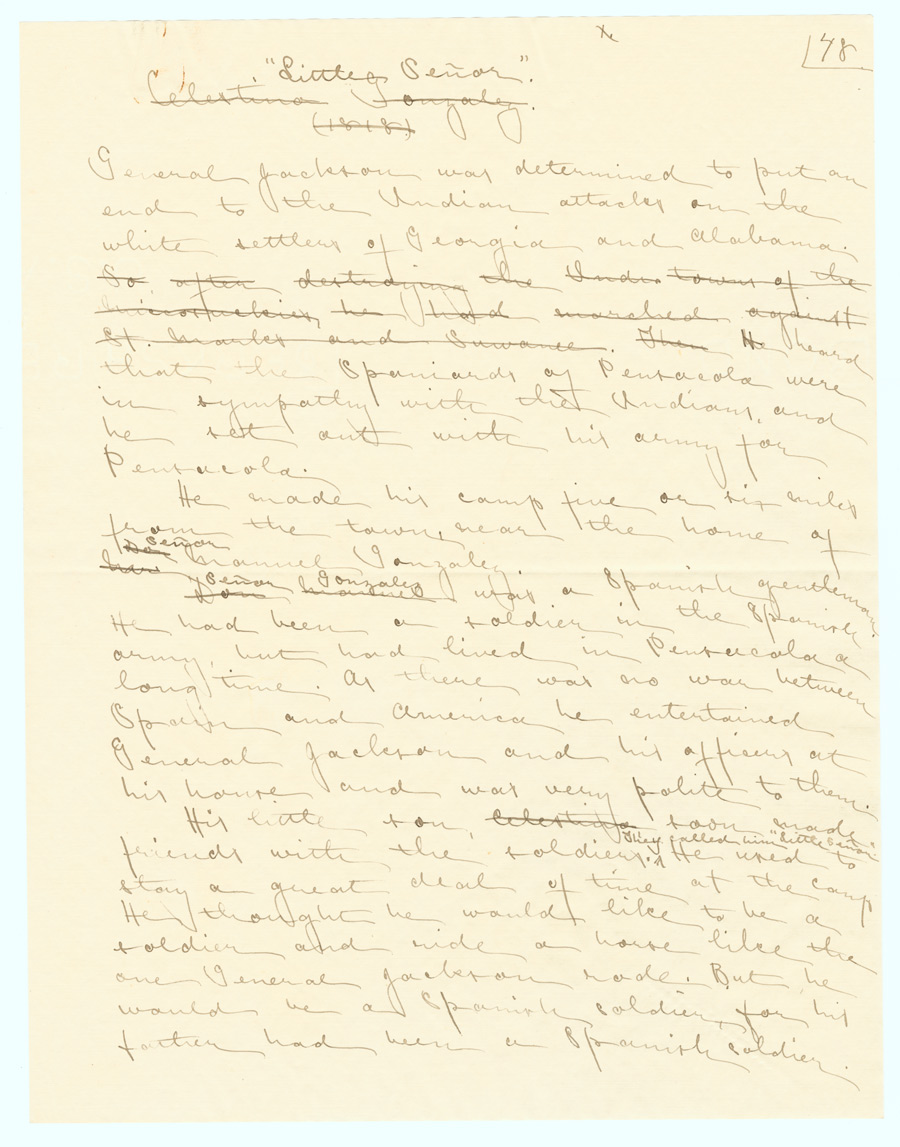 48
"Little Señor".
Celestino Gonzalez.
(1818)
General Jackson was determined to put an
end to the Indian attacks on the
white settlers of Georgia and Alabama.
So after destroying the Indian towns of the
he had marched against
St. Marks and Suwanee. Then He heard
that the Spaniards of Pensacola were
in sympathy with the Indians, and
he set out with his army for
Pensacola.
He made his camp five or six miles
from the town, near the home of
Don Señor Manuel Gonzalez.
Don Manuel Señor Gonzalez was a Spanish gentleman.
He had been a soldier in the Spanish
army, but had lived in Pensacola a
long time. As there was no war between
Spain and America he entertained
General Jackson and his officers at
his house and was very polite to them.
His little son, Celestino soon made
friends with the soldiers. They called him "Little Señor". He used to
stay a great deal of time at the camp
He thought he would like to be a
soldier and ride a horse like the
one General Jackson rode. But he
would be a Spanish soldier, for his
father had been a Spanish soldier.